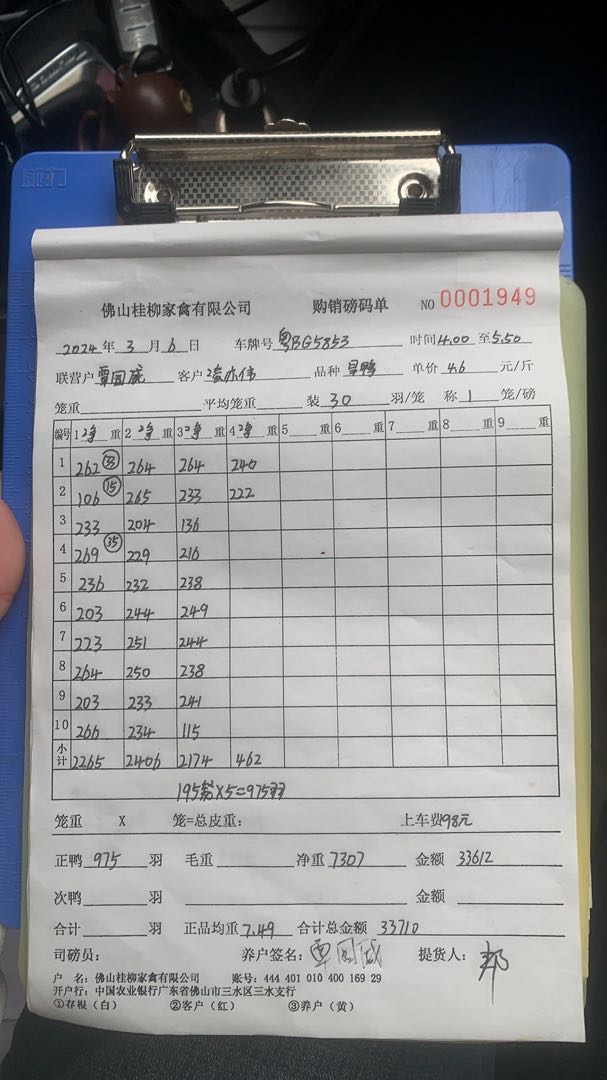 佛山桂柳家禽有限公司 购销磅码单 NO 0001949
2024年3月6日 车牌号粤BG5853 时间4.00至5.50
联营户覃国威 客户 亦伟 品种 单价4.6元/斤
笼重 平均笼重 装30羽/笼 称1笼/磅
编号 1净重 2净重 3净重 4净重 5重 6重 7重 8重 9重
1 262 33 264 264 240
2 106 15 265 233 222
3 233 204 136
4 269 35 229 216
5 236 232 238
6 203 244 249
7 223 251 244
8 264 250 238
9 203 233 241
10 266 234 115
小计 2265 2406 2174 462
195 ×5=975羽
笼重 X 笼=总皮重: 上车费98元
正鸭975羽 毛重 净重7307 金额33612
次鸭羽 金额
合计羽 正品均重7.49 合计总金额33710
司磅员: 养户签名:覃国威 提货人:邦
户 名:佛山桂柳家禽有限公司 账号:444 401 010 400 169 29
开户行:中国农业银行广东省佛山市三水区三水支行
①存根(白) ②客户(红) ③养户(黄)